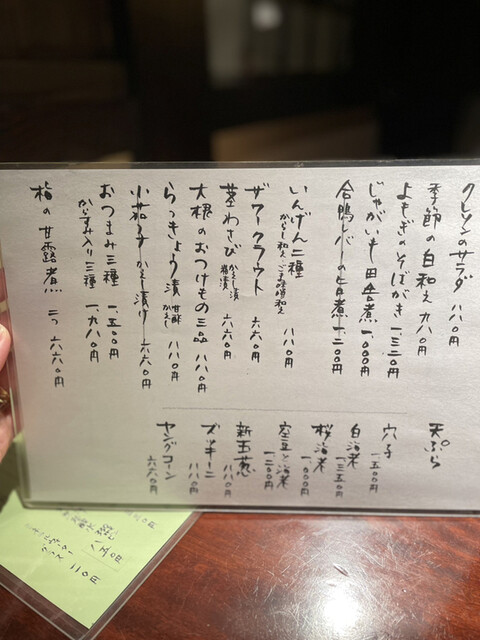 クレソンのサラダ 八八〇円
季節の白和え 九八〇円
よもぎのそばがき 一、三二〇円
じゃがいも田舎煮 一、〇〇〇円
合鴨レバーの旨煮 一、二〇〇円
いんげん二種 八八〇円
からし和え ごま味噌和え
ザワークラウト 六六〇円
茎わさび 六六〇円
大根のおつけもの三品 八八〇円
らっきょう漬 甘酢 かえし 八八〇円
小茄子 からし漬け 六六〇円
おつまみ三種 一、五〇〇円
からすみ入り三種 一、九八〇円
梅の甘露煮 二ツ 六六〇円
天ぷら
穴子 一、五〇〇円
白海老 一、三五〇円
桜海老 一、〇〇〇円
空豆と海老 一、二〇〇円
新玉葱 八八〇円
ズッキーニ 八八〇円
ヤングコーン 六六〇円